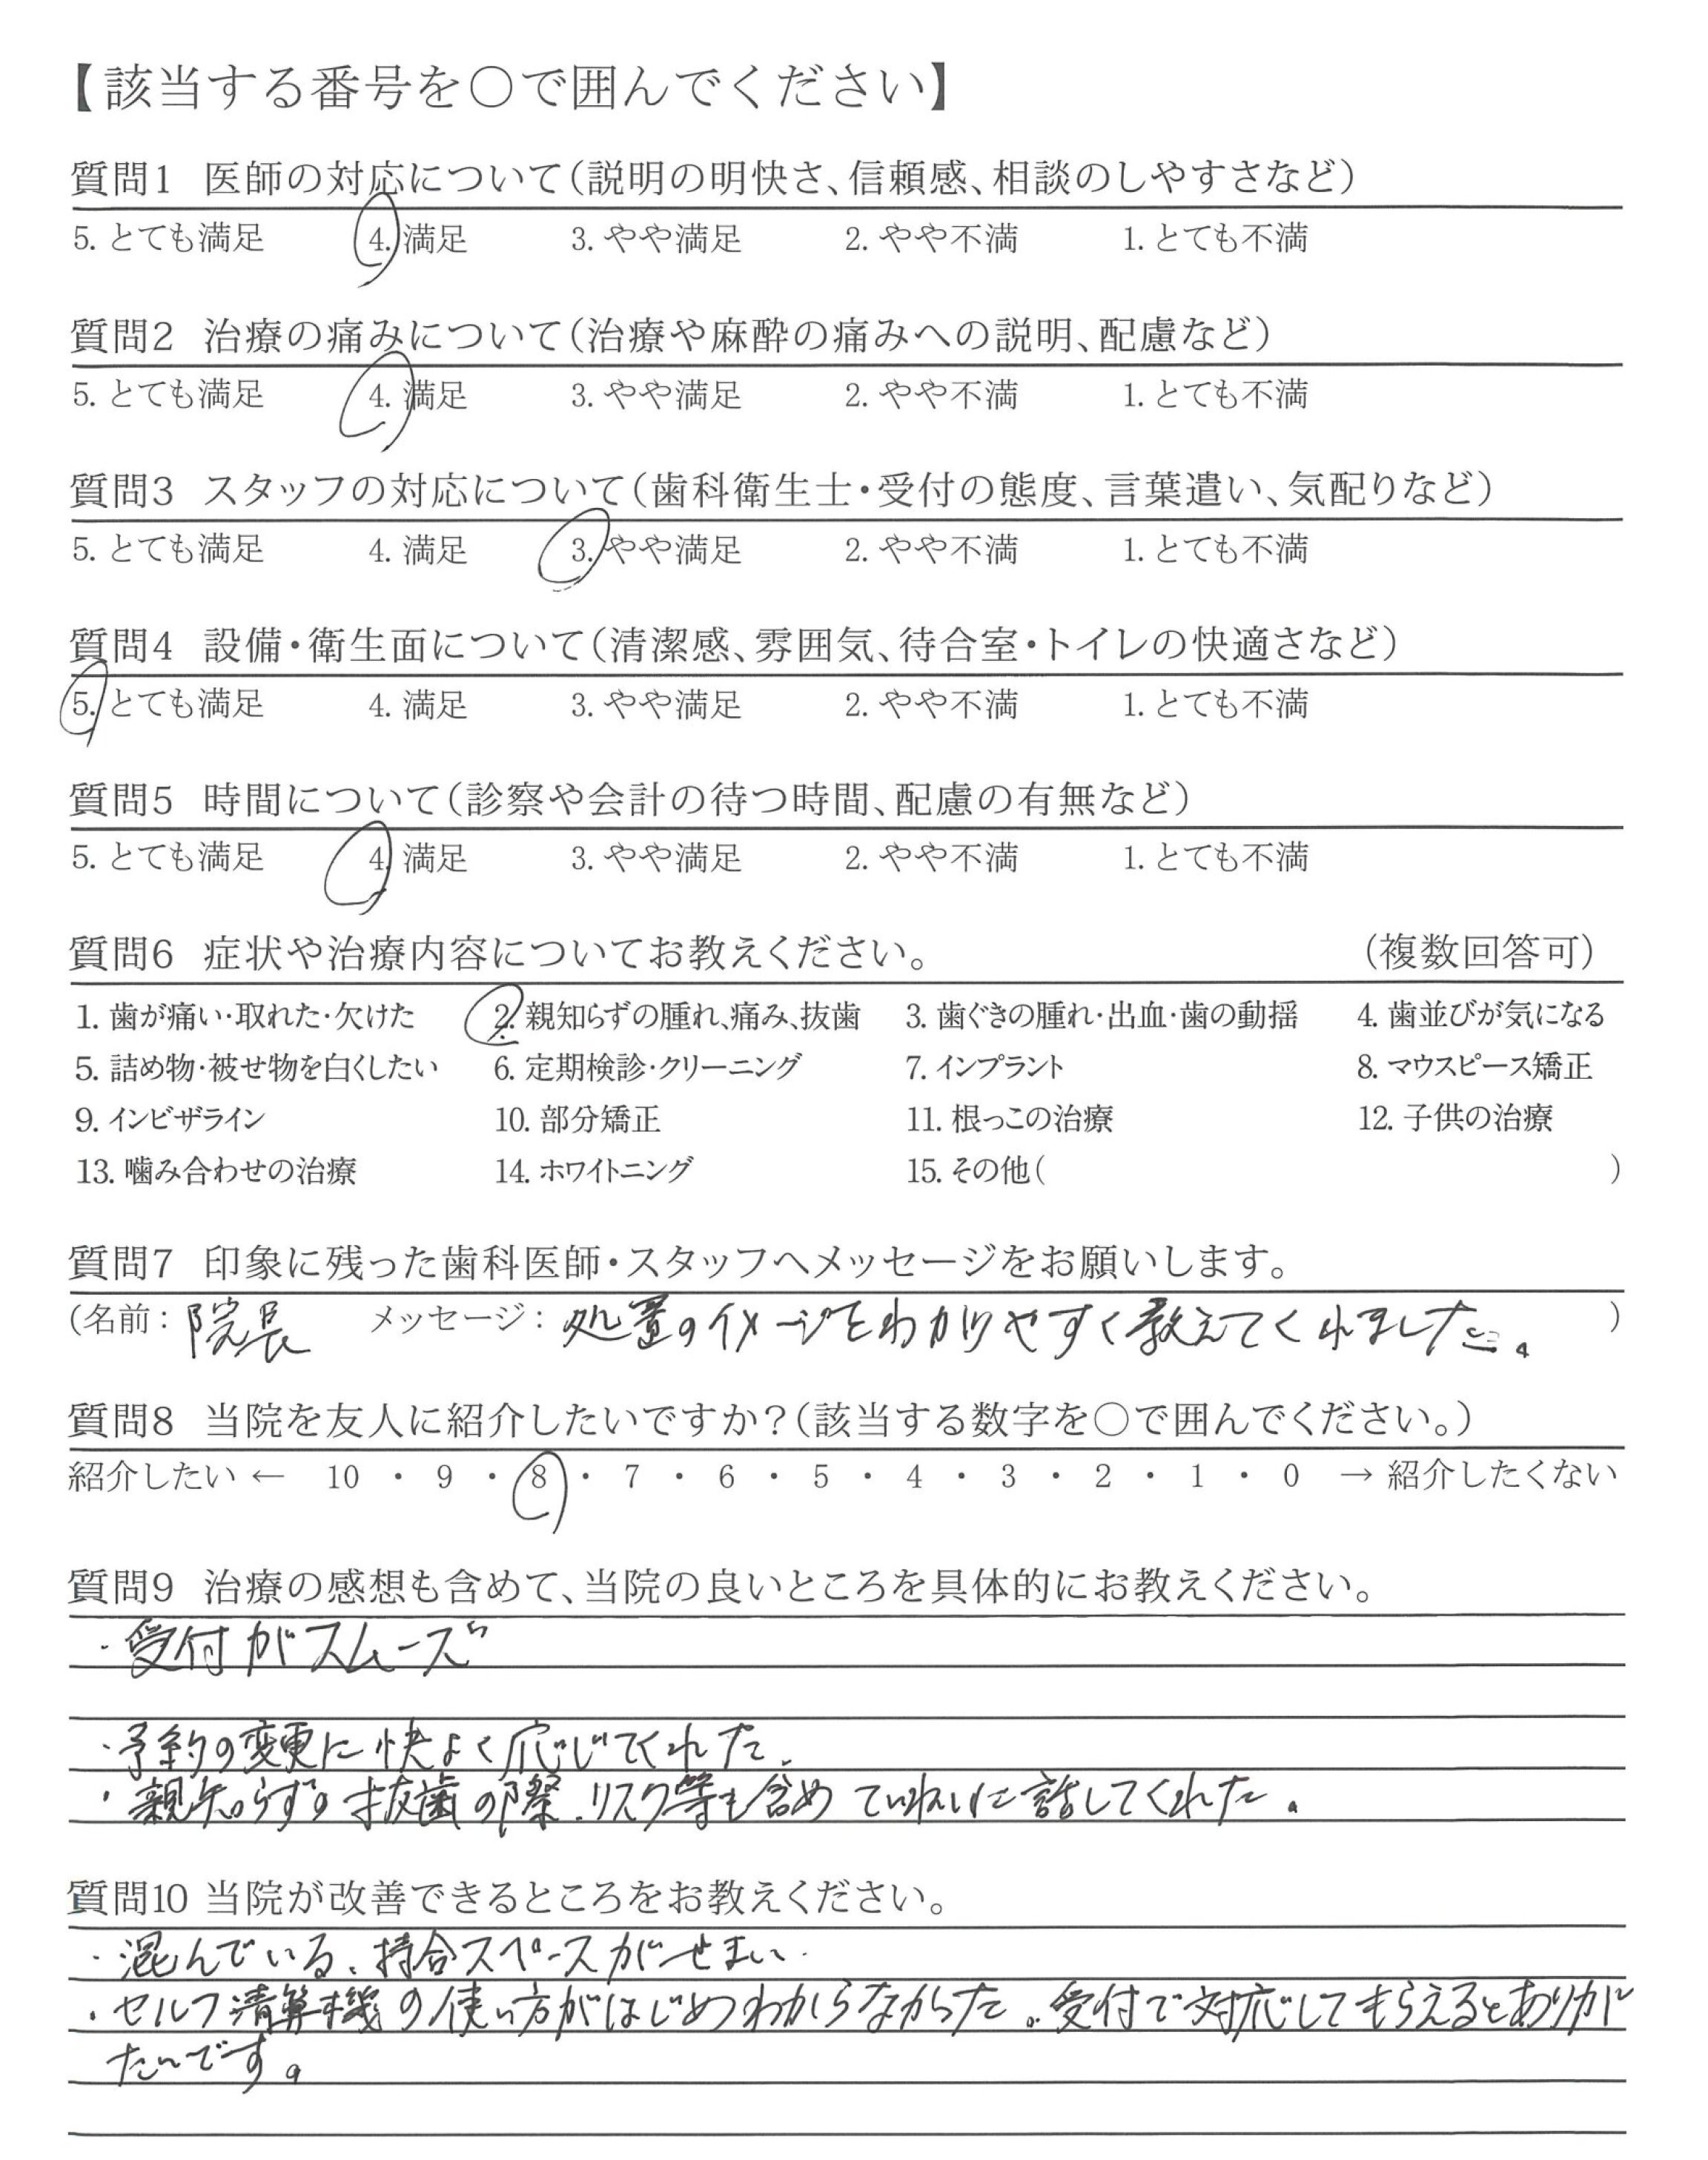 【該当する番号を○で囲んでください】
質問1 医師の対応について(説明の明快さ、信頼感、相談のしやすさなど)
5. とても満足 4. 満足 3. やや満足 2. やや不満 1. とても不満
質問2 治療の痛みについて(治療や麻酔の痛みへの説明、配慮など)
5. とても満足 4. 満足 3. やや満足 2. やや不満 1. とても不満
質問3 スタッフの対応について(歯科衛生士・受付の態度、言葉遣い、気配りなど)
5. とても満足 4. 満足 3. やや満足 2. やや不満 1. とても不満
質問4 設備・衛生面について(清潔感、雰囲気、待合室・トイレの快適さなど)
5. とても満足 4. 満足 3. やや満足 2. やや不満 1. とても不満
質問5 時間について(診察や会計の待つ時間、配慮の有無など)
5. とても満足 4. 満足 3. やや満足 2. やや不満 1. とても不満
質問6 症状や治療内容についてお教えください。 (複数回答可)
1. 歯が痛い・取れた・欠けた 2. 親知らずの腫れ、痛み、抜歯 3. 歯ぐきの腫れ・出血・歯の動揺 4. 歯並びが気になる
5. 詰め物・被せ物を白くしたい 6. 定期検診・クリーニング 7. インプラント 8. マウスピース矯正
9. インビザライン 10. 部分矯正 11. 根っこの治療 12. 子供の治療
13. 噛み合わせの治療 14. ホワイトニング 15. その他( )
質問7 印象に残った歯科医師・スタッフへメッセージをお願いします。
(名前：院長 メッセージ：処置のイメージをわかりやすく教えてくれました。 )
質問8 当院を友人に紹介したいですか？(該当する数字を○で囲んでください。)
紹介したい ← 10 ・ 9 ・ 8 ・ 7 ・ 6 ・ 5 ・ 4 ・ 3 ・ 2 ・ 1 ・ 0 → 紹介したくない
質問9 治療の感想も含めて、当院の良いところを具体的にお教えください。
・受付がスムーズ
・予約の変更に快よく応じてくれた。
・親知らずの抜歯の際、リスク等も含めていねいに話してくれた。
質問10 当院が改善できるところをお教えください。
・混んでいる、待合スペースがせまい
・セルフ清算機の使い方がはじめわからなかった。受付で対応してもらえるとありが
たいです。